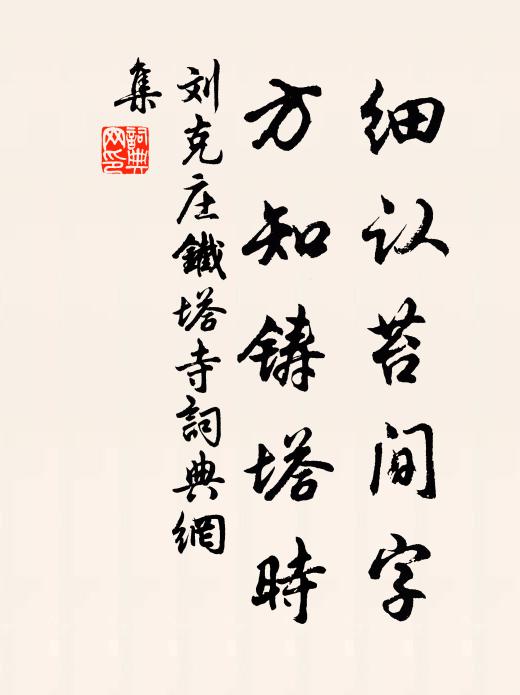 细认苔间字
方知铸塔时
刘克庄鐵塔寺詞典網
集
詞典网印